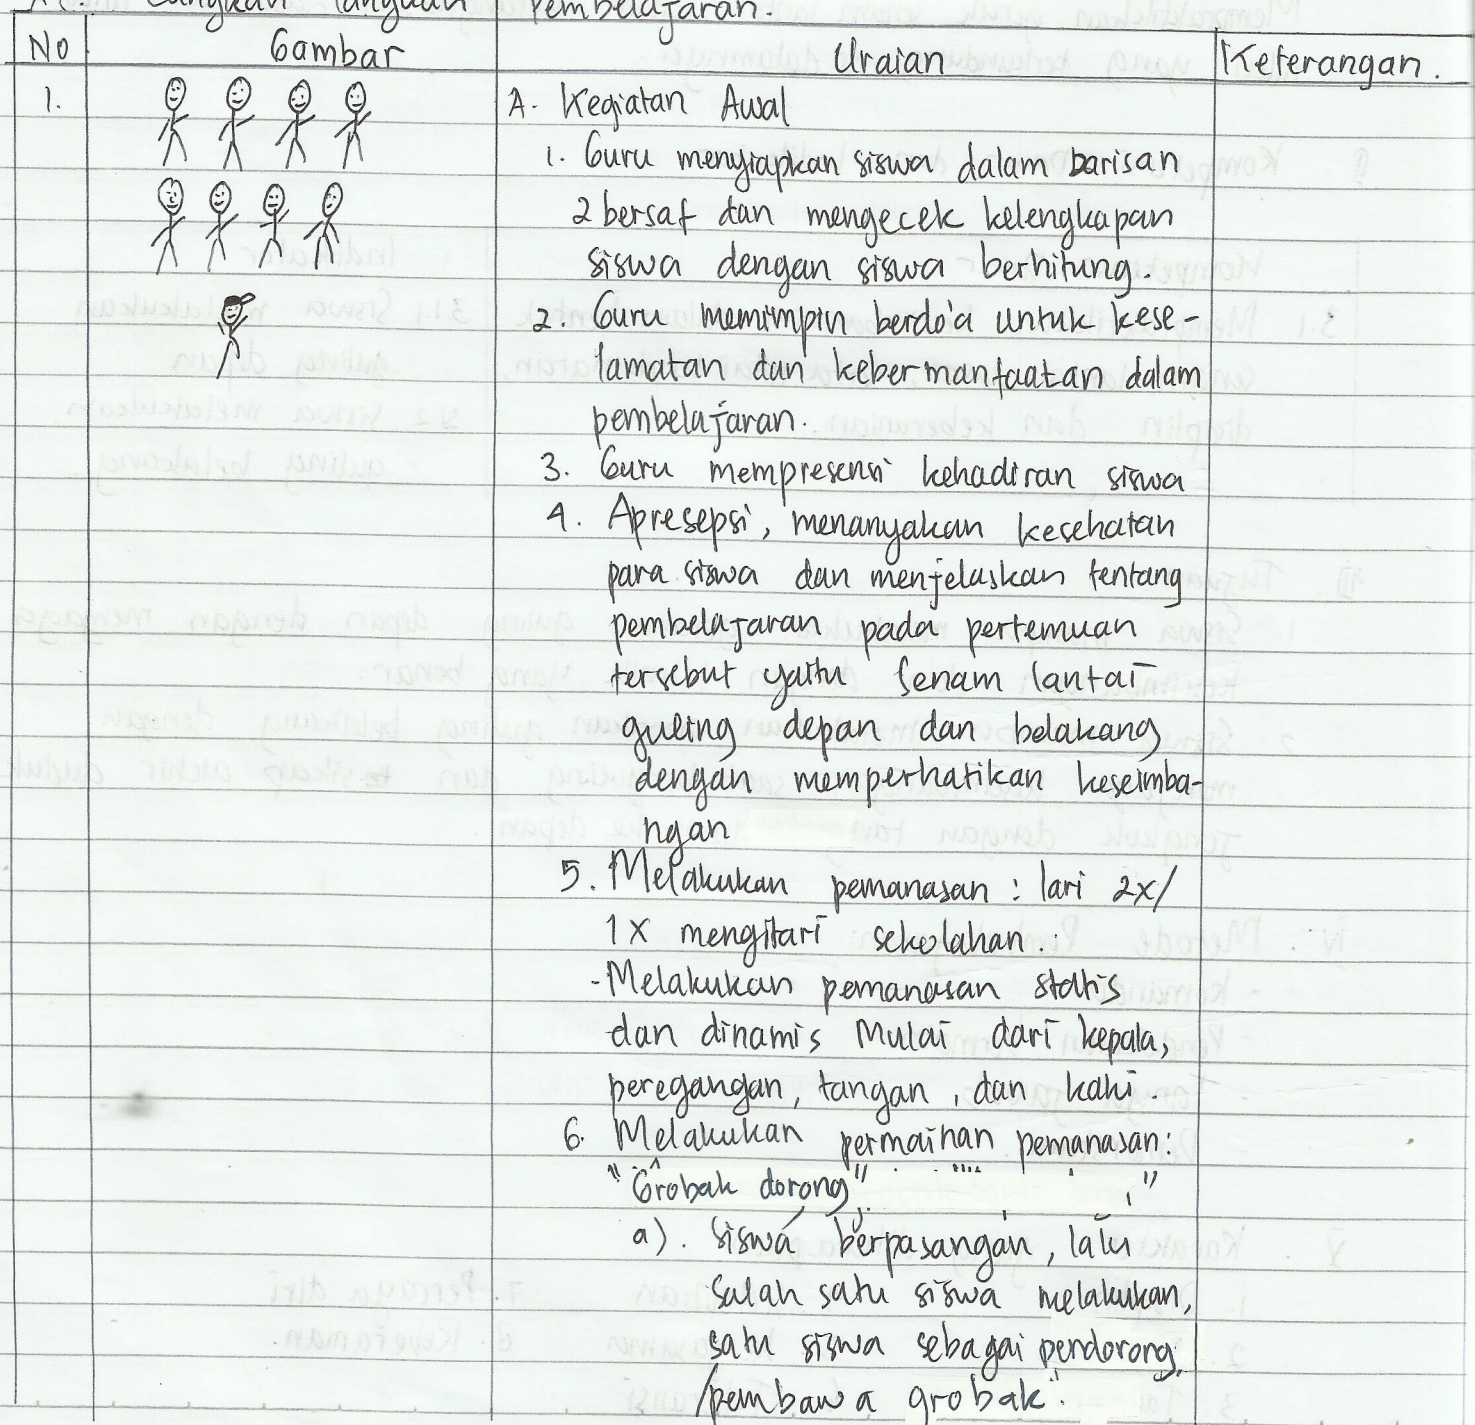 Langkah Langkah Pembelajaran.
No Gambar Uraian Keterangan.
1. A. Kegiatan Awal
1. Guru menyiapkan siswa dalam barisan
2 bersaf dan mengecek kelengkapan
siswa dengan siswa berhitung.
2. Guru memimpin berdo'a untuk kese-
lamatan dan kebermanfaatan dalam
pembelajaran.
3. Guru mempresensi kehadiran siswa
4. Apresepsi, menanyakan kesehatan
para siswa dan menjelaskan tentang
pembelajaran pada pertemuan
tersebut yaitu Senam lantai
guling depan dan belakang
dengan memperhatikan keseimba-
ngan
5. Melakukan pemanasan : lari 2x/
1x mengitari sekolahan.
- Melakukan pemanasan statis
dan dinamis Mulai dari kepala,
peregangan, tangan, dan kaki.
6. Melakukan permainan pemanasan:
"Grobak dorong"
a). Siswa berpasangan, lalu
salah satu siswa melakukan,
satu siswa sebagai pendorong
/pembawa grobak".